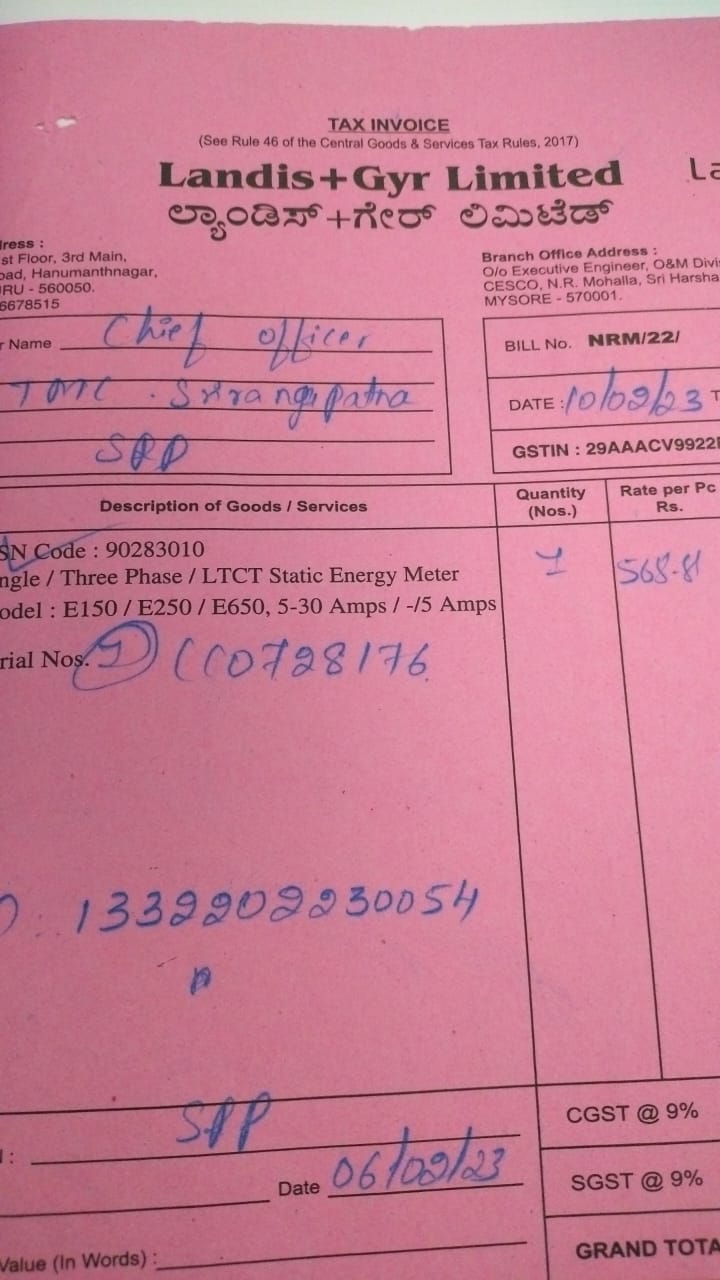 TAX INVOICE
(See Rule 46 of the Central Goods & Services Tax Rules, 2017)
Landis+Gyr Limited
La
ಲ್ಯಾಂಡಿಸ್+ಗೇರ್ ಲಿಮಿಟೆಡ್
ress :
st Floor, 3rd Main,
oad, Hanumanthnagar,
RU - 560050.
6678515
Branch Office Address :
O/o Executive Engineer, O&M Divi
CESCO, N.R. Mohalla, Sri Harsha
MYSORE - 570001.
r Name Chief Officer
TMC . Srirangapatna
SRP
BILL No. NRM/22/
DATE : 10/02/23 T
GSTIN : 29AAACV9922
Description of Goods / Services
Quantity
(Nos.)
Rate per Pc
Rs.
SN Code : 90283010
ngle / Three Phase / LTCT Static Energy Meter
1
568.81
odel : E150 / E250 / E650, 5-30 Amps / -/5 Amps
rial Nos. 1 CC0728176
1332202230054
SPP
CGST @ 9%
:
Date 06/02/23
SGST @ 9%
Value (In Words) :
GRAND TOTA